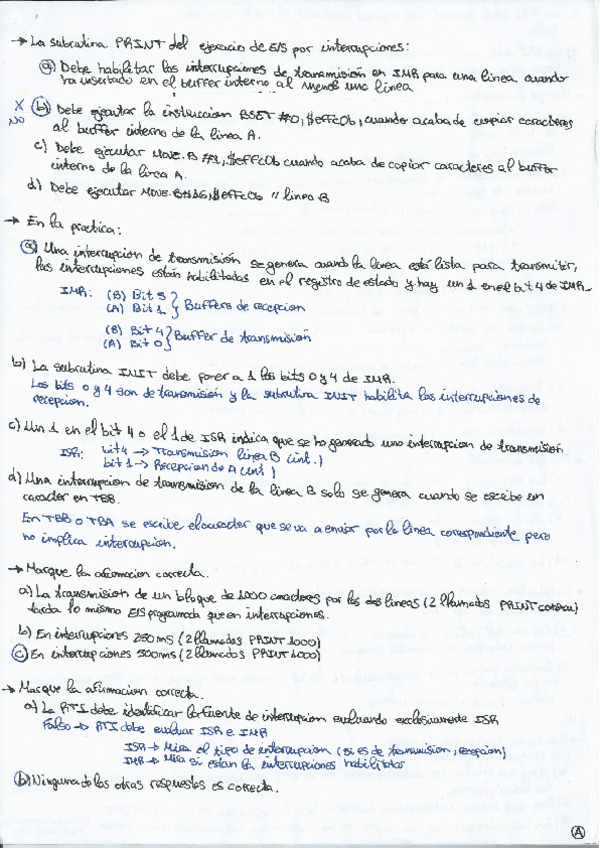 → La subrutina PRINT del ejercicio de E/S por interrupciones:
a) Debe habilitar las interrupciones de transmisión en IMR para una línea cuando
ha insertado en el buffer interno al menos una línea
X b) Debe ejecutar la instrucción BSET #0,$effc0b, cuando acaba de copiar caracteres
NO al buffer interno de la línea A.
c) Debe ejecutar MOVE.B #1,$effc0b cuando acaba de copiar caracteres al buffer
interno de la línea A.
d) Debe ejecutar MOVE.B #16,$effc0b " línea B
→ En la practica:
a) Una interrupcion de transmisión se genera cuando la línea está lista para transmitir,
las interrupciones están habilitadas en el registro de estado y hay un 1 en el bit 4 de IMR.
IMR: (B) Bit 5 } Buffers de recepcion
(A) Bit 1
(B) Bit 4 } Buffer de transmisión
(A) Bit 0
b) La subrutina INIT debe poner a 1 los bits 0 y 4 de IMR.
Los bits 0 y 4 son de transmisión y la subrutina INIT habilita las interrupciones de
recepcion.
c) Un 1 en el bit 4 o el 1 de ISR indica que se ha generado una interrupcion de transmisión
ISR: bit 4 → Transmision línea B (int.)
bit 1 → Recepcion de A (int)
d) Una interrupcion de transmision de la línea B solo se genera cuando se escribe un
caracter en TBB.
En TBB o TBA se escribe el caracter que se va a enviar por la línea correspondiente pero
no implica interrupcion.
→ Marque la afirmacion correcta.
a) La transmisión de un bloque de 1000 caracteres por las dos líneas (2 llamadas PRINT
tarda lo mismo E/S programada que en interrupciones.
b) En interrupciones 250ms (2 llamadas PRINT 1000)
c) En interrupciones 500ms (2 llamadas PRINT 1000)
→ Marque la afirmacion correcta.
a) La RTI debe identificar la fuente de interrupcion evaluando exclusivamente ISR
Falso → RTI debe evaluar ISR e IMR
ISR → Mira el tipo de interrupcion (si es de transmision, recepcion)
IMR → Mira si estan la interrupciones habilitadas
b) Ninguna de las otras respuestas es correcta.
A